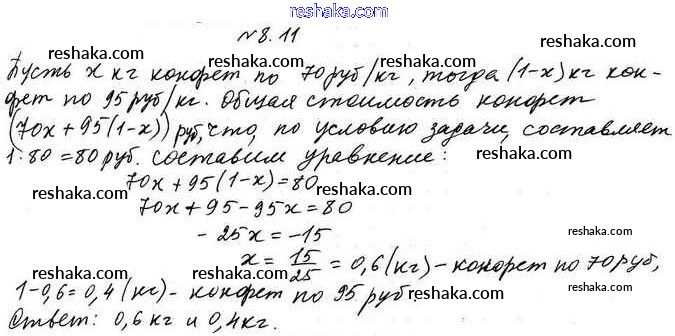 reshaka.com
№8.11
reshaka.com reshaka.com
Пусть x кг конфет по 70 руб/кг, тогда (1-x) кг кон-
фет по 95 руб/кг. Общая стоимость конфет
reshaka.com reshaka.com
(70x + 95(1-x)) руб, что, по условию задачи, составляет
1·80 = 80 руб. составим уравнение: reshaka.com
70x + 95(1-x) = 80
reshaka.com reshaka.com
70x + 95 - 95x = 80
reshaka.com
- 25x = -15
x = 15/25 = 0,6 (кг) - конфет по 70 руб,
reshaka.com reshaka.com
1-0,6 = 0,4 (кг) - конфет по 95 руб
reshaka.com
Ответ: 0,6 кг и 0,4 кг. reshaka.com